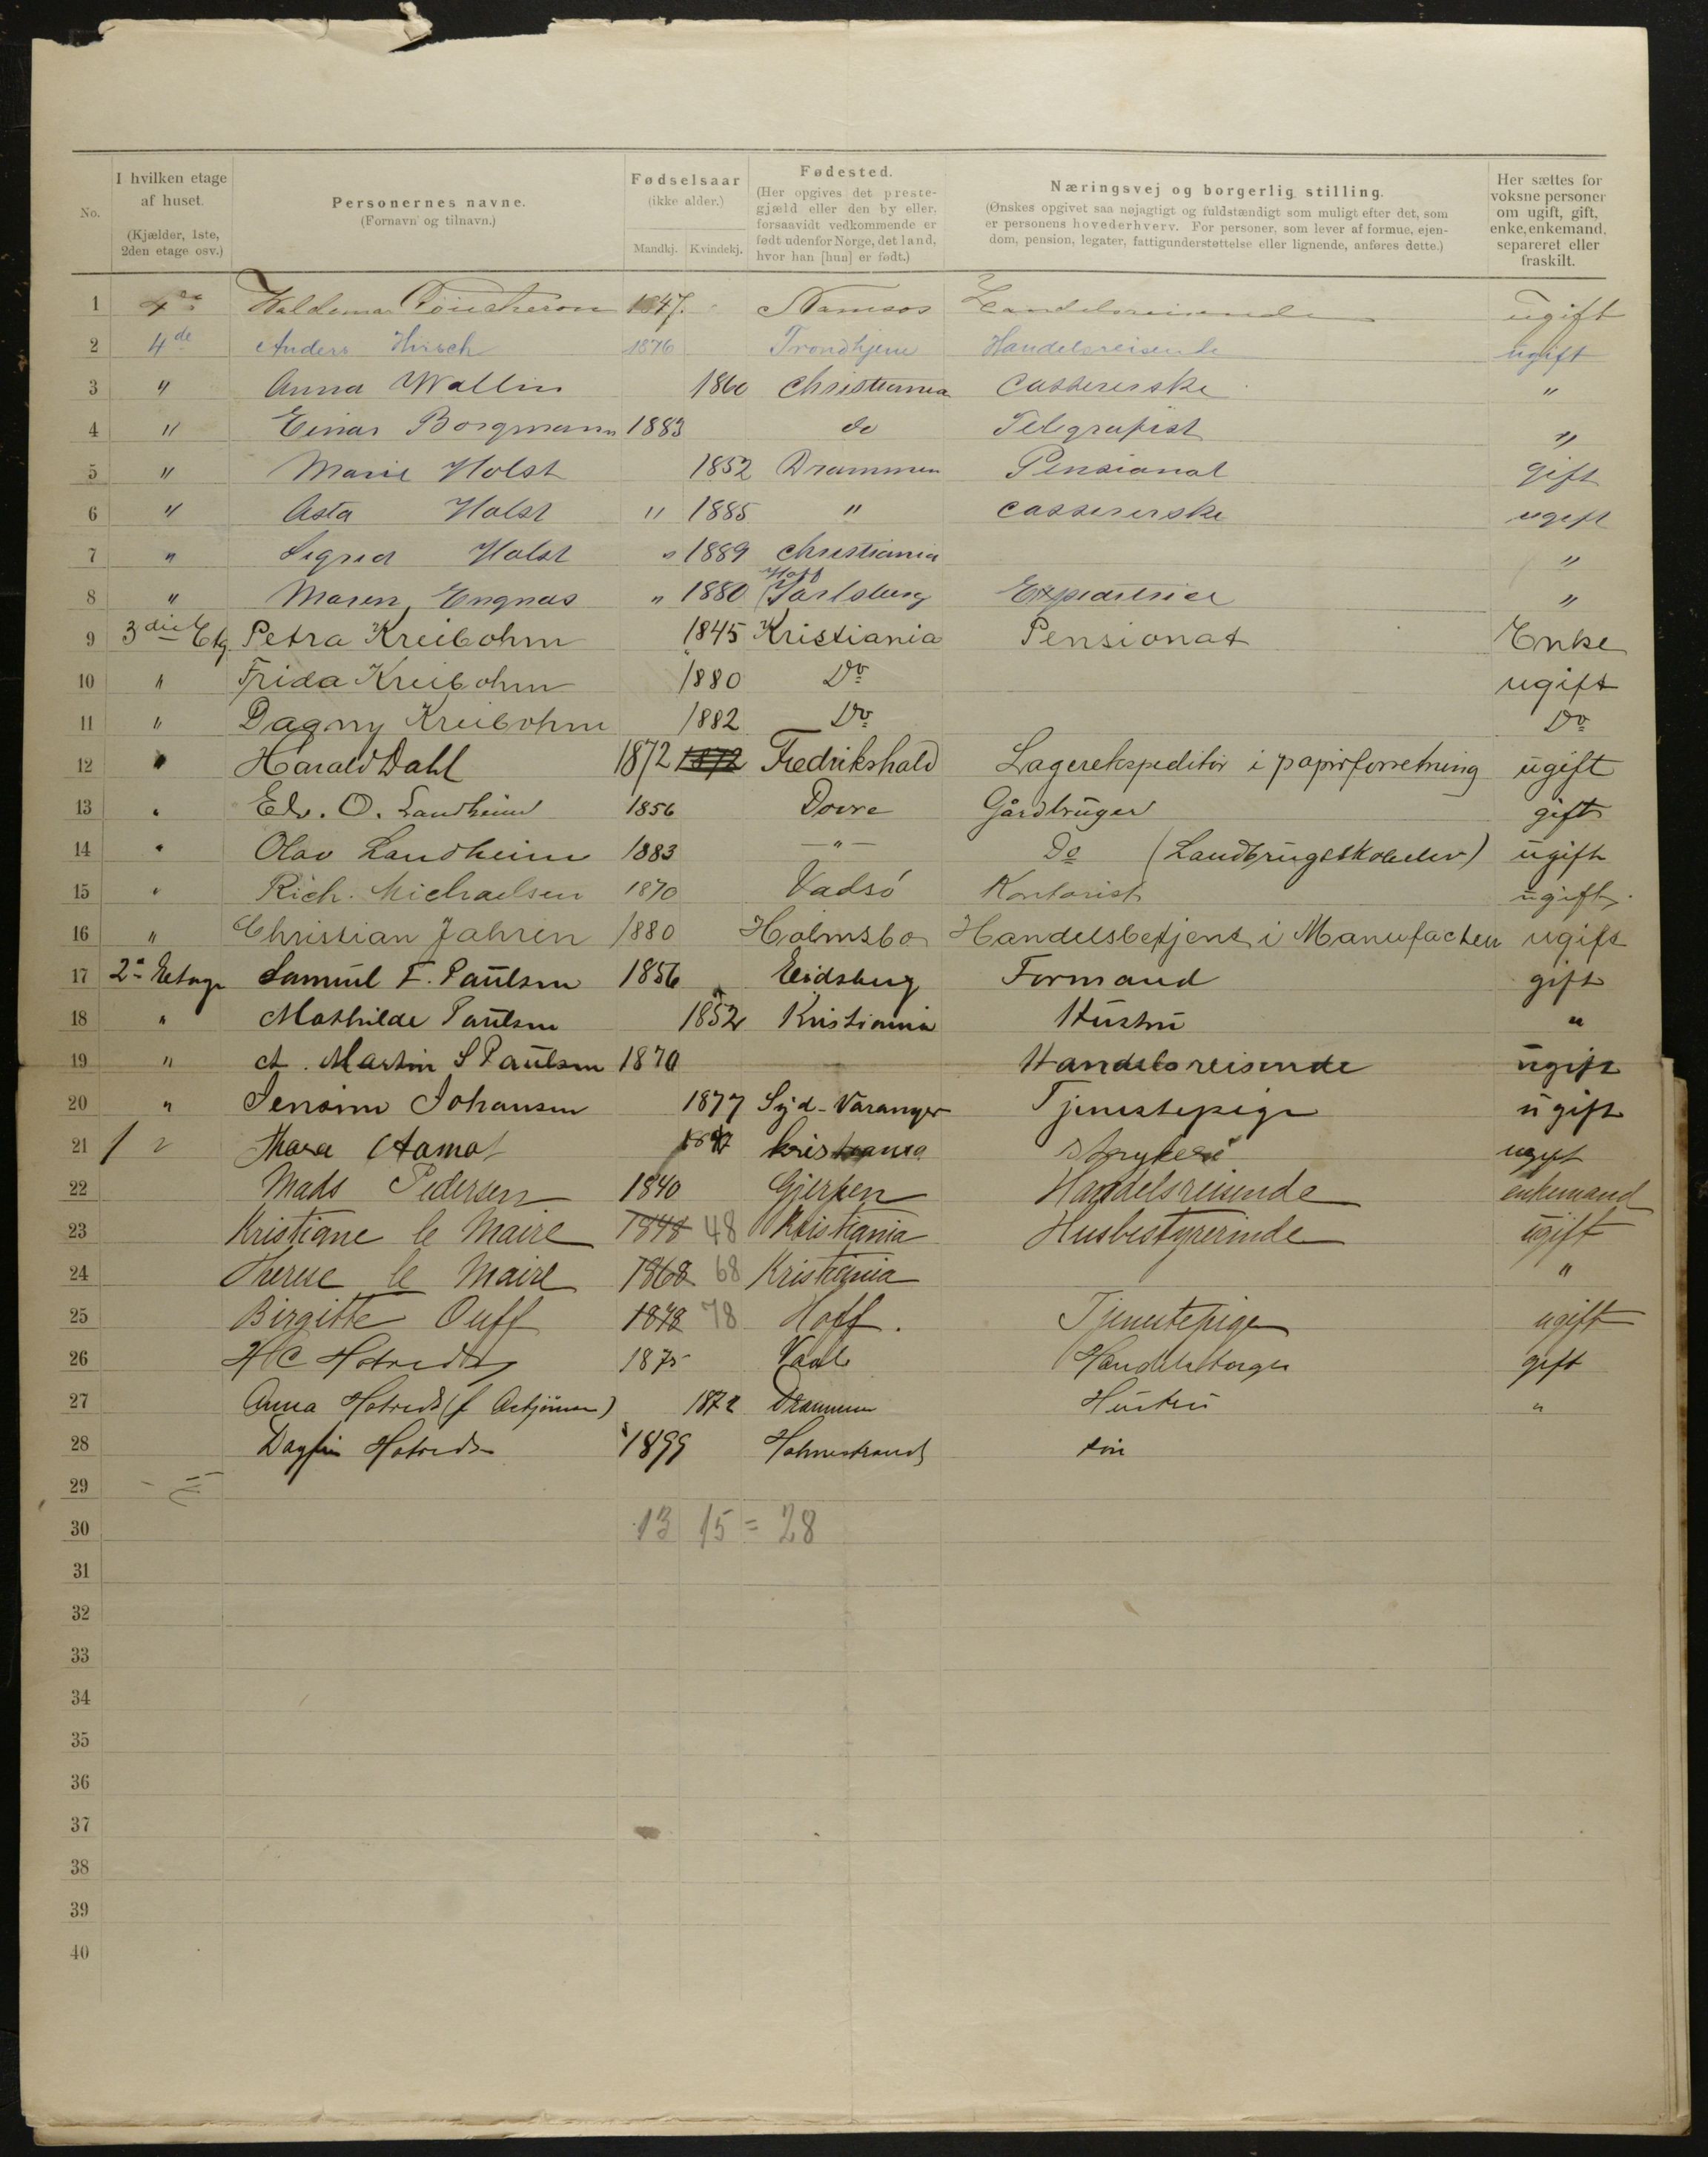 No. I hvilken etage af huset. (Kjælder, 1ste, 2den etage osv.) Personernes navne. (Fornavn og tilnavn.) Fødselsaar (ikke alder.) Mandkj. Kvindekj. Fødested. (Her opgives det prestegjæld eller den by eller, forsaavidt vedkommende er født udenfor Norge, det land, hvor han [hun] er født.) Næringsvej og borgerlig stilling. (Ønskes opgivet saa nøjagtigt og fuldstændigt som muligt efter det, som er personens hovederhverv. For personer, som lever af formue, ejendom, pension, legater, fattigunderstøttelse eller lignende, anføres dette.) Her sættes for voksne personer om ugift, gift, enke, enkemand, separeret eller fraskilt.
1 4de Valdemar 1847. Namsos Handelsreisende ugift
2 4de Anders Hirsch 1876 Trondhjem Handelsreisende ugift
3 " Anna Wallin 1860 Christiania Cassererske "
4 " Einar Borgmann 1883 do Telegrafist "
5 " Marie Holst 1852 Drammen Pensionat gift
6 " Asta Holst " 1885 " Cassererske ugift
7 " Sigrid Holst " 1889 Christiania "
8 " Maren Engnæs " 1880 Hoff Jarlsberg "
9 3die Etg Petra Kreibohm 1845 Kristiania Pensionat Enke
10 " Frida Kreibohm 1880 Do ugift
11 " Dagny Kreibohm 1882 Do Do
12 " Harald Dahl 1872 1872 Fredrikshald Lagerekspeditör i papirforretning ugift
13 " Edv. O. Landheim 1856 Dovre Gårdbruger gift
14 " Olav Landheim 1883 -"- Do (Landbrugsskoleelev) ugift
15 " Rich. Michaelsen 1870 Vadsó Kontorist ugift.
16 " Christian Jahren 1880 Holmsbo Handelsbetjent i Manufactur ugift
17 2n Etage Samuel F. Paulsen 1856 Eidsberg Formand gift
18 " Mathilde Paulsen 1852 Kristiania Hustru "
19 " A. Martin S Paulsen 1870 Handelsreisende ugift
20 " Jensine Johansen 1877 Syd-Varanger Tjenestepige ugift
21 Thora Aamot Kristiania Strykeri ugift
22 Mads Pedersen 1840 Gjerpen Handelsreisende enkemand
23 Kristiane le Maire 1848 48 Kristiania Husbestyrerinde ugift
24 Therese le Maire 1868 68 Kristiania "
25 Birgitte Ouff 1878 78 Hoff. Tjenestepige ugift
26 H C Hotvedt 1875 Vaale Handelsborger gift
27 Anna Hotvedt (f. 1872 Drammen Hustru "
28 Dagfin Hotvedt 1899 Holmestrand sön
29
30 13 15 = 28
31
32
33
34
35
36
37
38
39
40